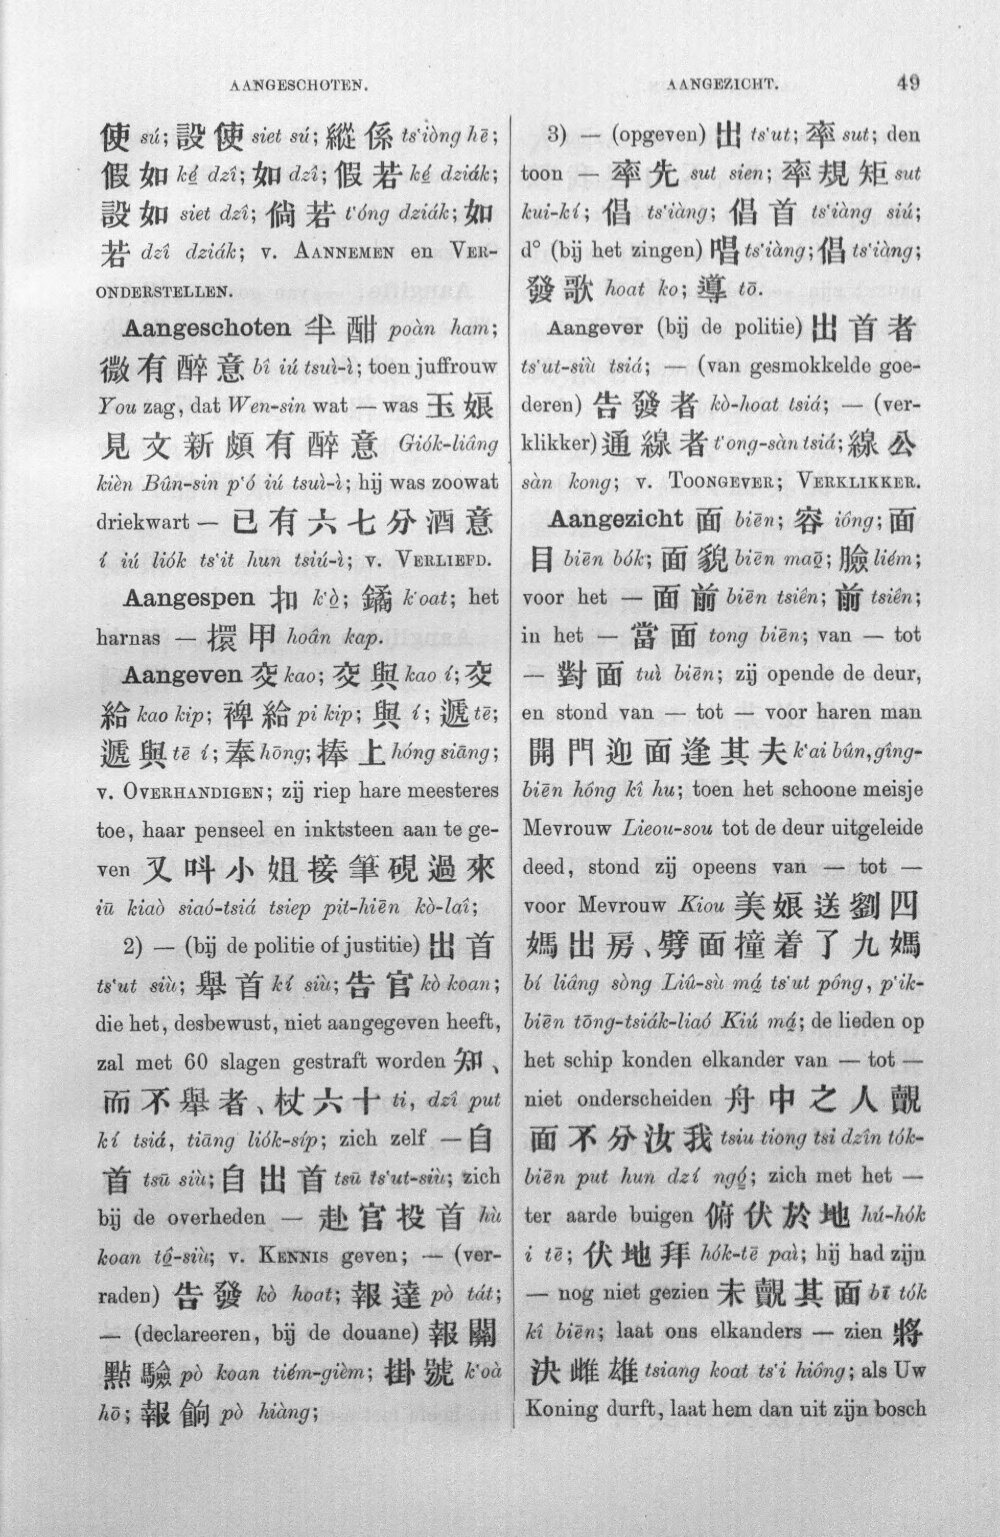 AANGESCHOTEN.
AANGEZICHT.
49
使 sú; 設使 siet sú; 縱係 ts‘iòng hē;
假如 ké̲ dzî; 如 dzî; 假若 ké̲ dziák;
設如 siet dzî; 倘若 t‘óng dziák; 如
若 dzî dziák; v. AANNEMEN en VER-
ONDERSTELLEN.
Aangeschoten 半酣 poàn ham;
微有醉意 bî iú tsuì-ì; toen juffrouw
You zag, dat Wen-sin wat — was 玉娘
見文新頗有醉意 Giók-liâng
kièn Bûn-sin p‘ó iú tsuì-ì; hij was zoowat
driekwart — 已有六七分酒意
í iú liók ts‘it hun tsiú-ì; v. VERLIEFD.
Aangespen 扣 k‘ò̲; 鐍 k‘oat; het
harnas — 擐甲 hoân kap.
Aangeven 交 kao; 交與 kao í; 交
給 kao kip; 裨給 pi kip; 與 í; 遞 tē;
遞與 tē í; 奉 hōng; 捧上 hóng siāng;
v. OVERHANDIGEN; zij riep hare meesteres
toe, haar penseel en inktsteen aan te ge-
ven 又呌小姐接筆硯過來
iū kiaò siaó-tsiá tsiep pit-hiēn kò-laî;
2) — (bij de politie of justitie) 出首
ts‘ut siù; 舉首 kí siù; 告官 kò koan;
die het, desbewust, niet aangegeven heeft,
zal met 60 slagen gestraft worden 知、
而不舉者、杖六十 ti, dzî put
kí tsiá, tiāng liók-síp; zich zelf — 自
首 tsū siù; 自出首 tsū ts‘ut-siù; zich
bij de overheden — 赴官投首 hù
koan tô̲-siù; v. KENNIS geven; — (ver-
raden) 告發 kò hoat; 報達 pò tát;
— (declareeren, bij de douane) 報關
點驗 pò koan tiém-gièm; 掛號 k‘oà
hō; 報餉 pò hiàng;
3) — (opgeven) 出 ts‘ut; 率 sut; den
toon — 率先 sut sien; 率規矩 sut
kui-kí; 倡 ts‘iàng; 倡首 ts‘iàng siú;
d° (bij het zingen) 唱 ts‘iàng; 倡 ts‘iàng;
發歌 hoat ko; 導 tō.
Aangever (bij de politie) 出首者
ts‘ut-siù tsiá; — (van gesmokkelde goe-
deren) 告發者 kò-hoat tsiá; — (ver-
klikker) 通線者 t‘ong-sàn tsiá; 線公
sàn kong; v. TOONGEVER; VERKLIKKER.
Aangezicht 面 biēn; 容 iông; 面
目 biēn bók; 面貌 biēn maō̲; 臉 liém;
voor het — 面前 biēn tsiên; 前 tsiên;
in het — 當面 tong biēn; van — tot
— 對面 tuì biēn; zij opende de deur,
en stond van — tot — voor haren man
開門迎面逢其夫 k‘ai bûn, gîng-
biēn hóng kî hu; toen het schoone meisje
Mevrouw Lieou-sou tot de deur uitgeleide
deed, stond zij opeens van — tot —
voor Mevrouw Kiou 美娘送劉四
媽出房、劈面撞着了九媽
bí liâng sòng Liû-sù má̲ ts‘ut pông, p‘ik-
biēn tōng-tsiák-liaó Kiú má̲; de lieden op
het schip konden elkander van — tot —
niet onderscheiden 舟中之人覿
面不分汝我 tsiu tiong tsi dzîn tók-
biēn put hun dzí ngó̲; zich met het —
ter aarde buigen 俯伏於地 hú-hók
i tē; 伏地拜 hók-tē paì; hij had zijn
— nog niet gezien 未覿其面 bī tók
kî biēn; laat ons elkanders — zien 將
決雌雄 tsiang koat ts‘i hiông; als Uw
Koning durft, laat hem dan uit zijn bosch